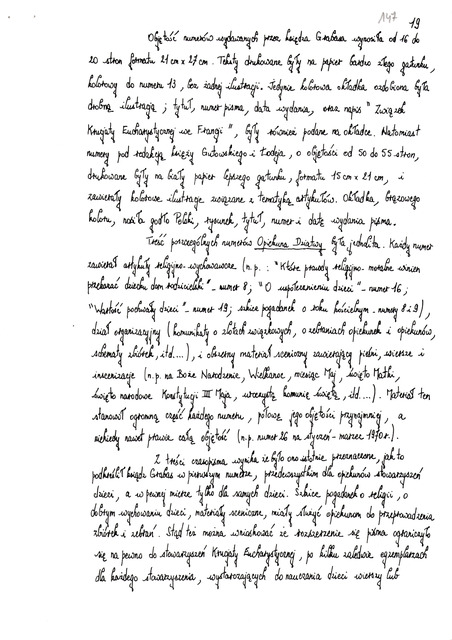 147
19
Objętość numerów wydawanych przez księdza Grabasa wynosiła od 16 do
20 stron formatu 21 cm x 27 cm. Teksty drukowane były na papier bardzo złego gatunku,
kolorowy do numeru 13, bez żadnej ilustracji. Jedynie kolorowa okładka ozdobiona była
drobną ilustracją; tytuł, numer pisma, data wydania, oraz napis "Związek
Krucjaty Eucharystycznej we Francji", były również podane na okładce. Natomiast
numery pod redakcją księży Gutowskiego i Łodeja, o objętości od 50 do 55 stron,
drukowane były na biały papier lepszego gatunku, formatu 15 cm x 21 cm, i
zawierały kolorowe ilustracje związane z tematyką artykułów. Okładka, brązowego
koloru, nosiła godło Polski, rysunek, tytuł, numer i datę wydania pisma.
Treść poszczególnych numerów Opiekuna Dziatwy była jednolita. Każdy numer
zawierał artykuły religijno-wychowawcze (n.p.: "Które prawdy religijno-moralne winien
przekazać dziecku dom rodzicielski" - numer 8; "O uspołecznieniu dzieci" - numer 16;
"Wartość pochwały dzieci" - numer 19; szkice pogadanek o roku kościelnym - numery 8 i 9),
dział organizacyjny (komunikaty o zlotach związkowych, o zebraniach opiekunek i opiekunów,
schematy zbiórek, itd....), i obszerny materiał sceniczny zawierający pieśni, wiersze i
inscenizacje (n.p. na Boże Narodzenie, Wielkanoc, miesiąc Maj, święto Matki,
święto narodowe Konstytucji III Maja, uroczystą komunię świętą, itd....). Materiał ten
stanowił ogromną część każdego numeru, połowę jego objętości przynajmniej, a
niekiedy nawet prawie całą objętość (n.p. numer 26 na styczeń - marzec 1970 r.).
Z treści czasopisma wynika że było ono istotnie przeznaczone, jak to
podkreślił ksiądz Grabas w pierwszym numerze, przedewszystkim dla opiekunów stowarzyszeń
dzieci, a w pewnej mierze tylko dla samych dzieci. Szkice pogadanek o religii, o
dobrym wychowaniu dzieci, materiały sceniczne, miały służyć opiekunom do przeprowadzenia
zbiórek i zebrań. Stąd też można wnioskować że rozszerzenie się pisma ograniczyło
się na pewno do stowarzyszeń Krucjaty Eucharystycznej, po kilku zaledwie egzemplarzach
dla każdego stowarzyszenia, wystarczających do nauczania dzieci wierszy lub